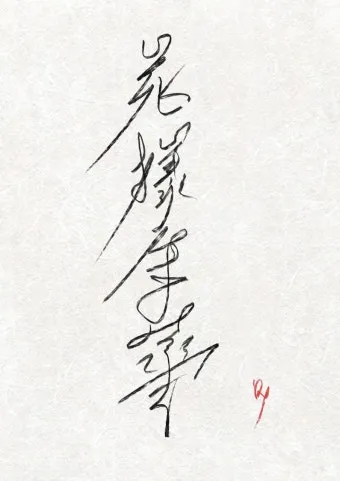 花樣年華